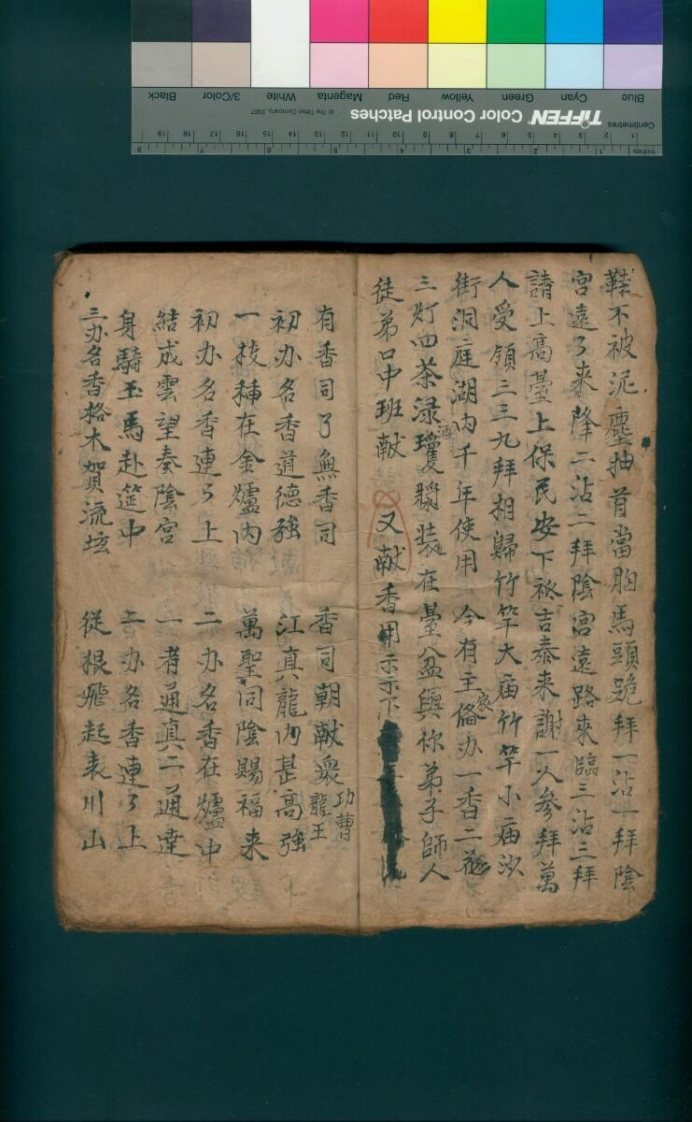 鞋不被泥塵抽首當胸馬頭跪拜一沾一拜陰
宮遠了来降二沾二拜陰宮遠路來臨三沾三拜
請上高臺上保民安下祢吉泰来謝一人參拜萬
人受領三三九拜相歸竹竿大庙竹竿小庙沙
街洞庭湖内千年使用今有主偹办一香二花
三灯四茶渌瓊漿装在臺盆與你弟子師人
徒弟口中班献 又献香用示示下
有香司了魚香司 香司朝献衆龍王功曹
初办名香道德強 江真龍内甚高強
一枝种在金爐内 萬聖同陰賜福来
初办名香連了上 二办名香在爐中
結成雲望奏陰宮 一者通真二通達
身騎玉馬赴筵中 二办名香連了上
三办名香格木賀流坛 從根飛起表川山
Blue Cyan Green Yellow Red Magenta White 3/Color Black
TIFFEN Color Control Patches
© The Tiffen Company, 2007
Centimetres
Inches